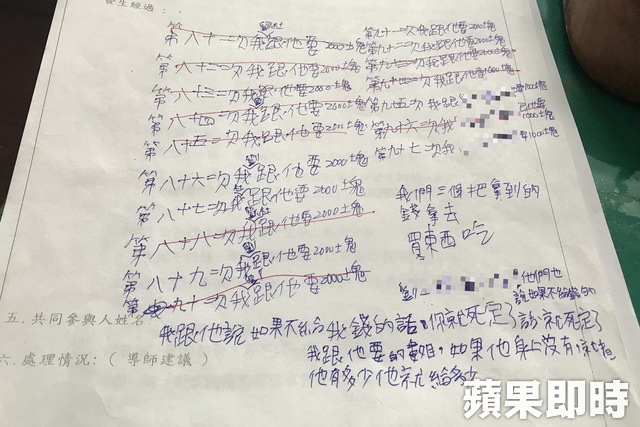 發生經過：
第八十一次我跟他要2000塊 第九十一次我跟他要2000塊
第八十二次我跟他要2000塊 第九十二次我跟他要2000塊
第八十三次我跟他要2000塊 第九十三次我跟他要2000塊
第八十四次我跟他要2000塊 第九十四次我跟他要1000塊
第八十五次我跟他要2000塊 第九十五次我跟
第八十六次我跟他要2000塊 第九十六次我 1000塊
第八十七次我跟他要2000塊 第九十七次我 要1000塊
第八十八次我跟他要2000塊
第八十九次我跟他要2000塊
第九十次我跟他要2000塊
我們三個把拿到的
錢拿去
買東西吃
他們也
說如果不給錢的
五．共同參與人姓名：
我跟他說如果不給我錢的話，你就死定了
就死定了
六．處理情況：（導師建議）
我跟他要的 ，如果他身上沒有，
他有多少他就給多少
蘋果即時